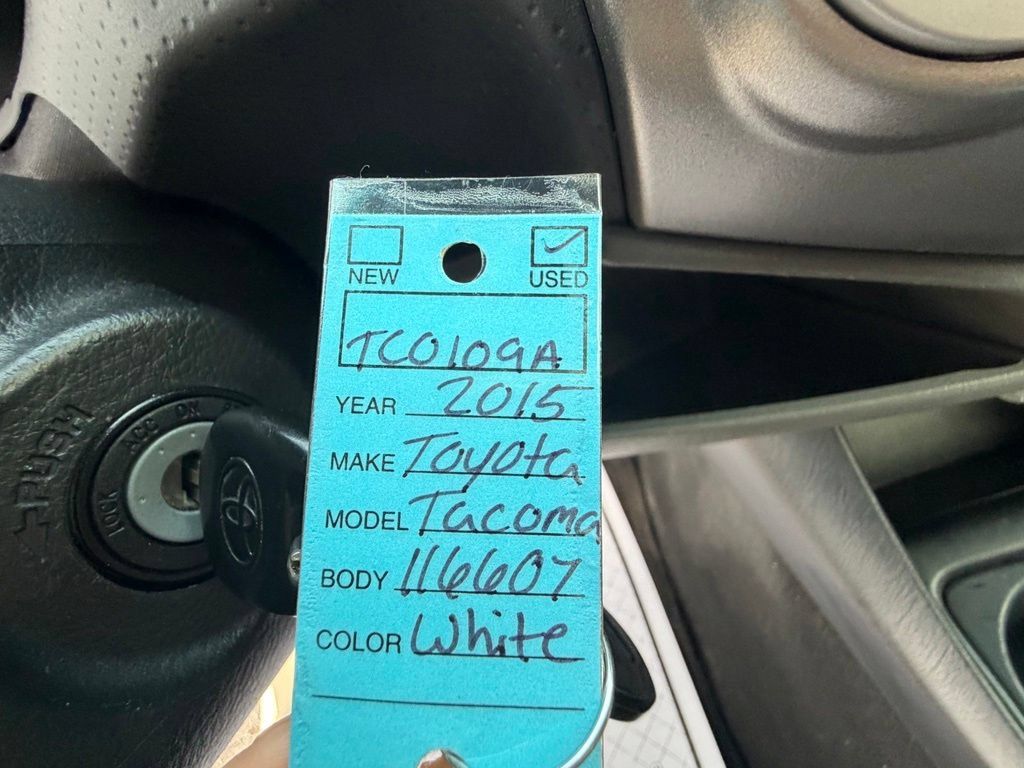 NEW USED
TC0109A
YEAR 2015
MAKE Toyota
MODEL Tacoma
BODY 116607
COLOR White
PUSH
LOCK ACC ON